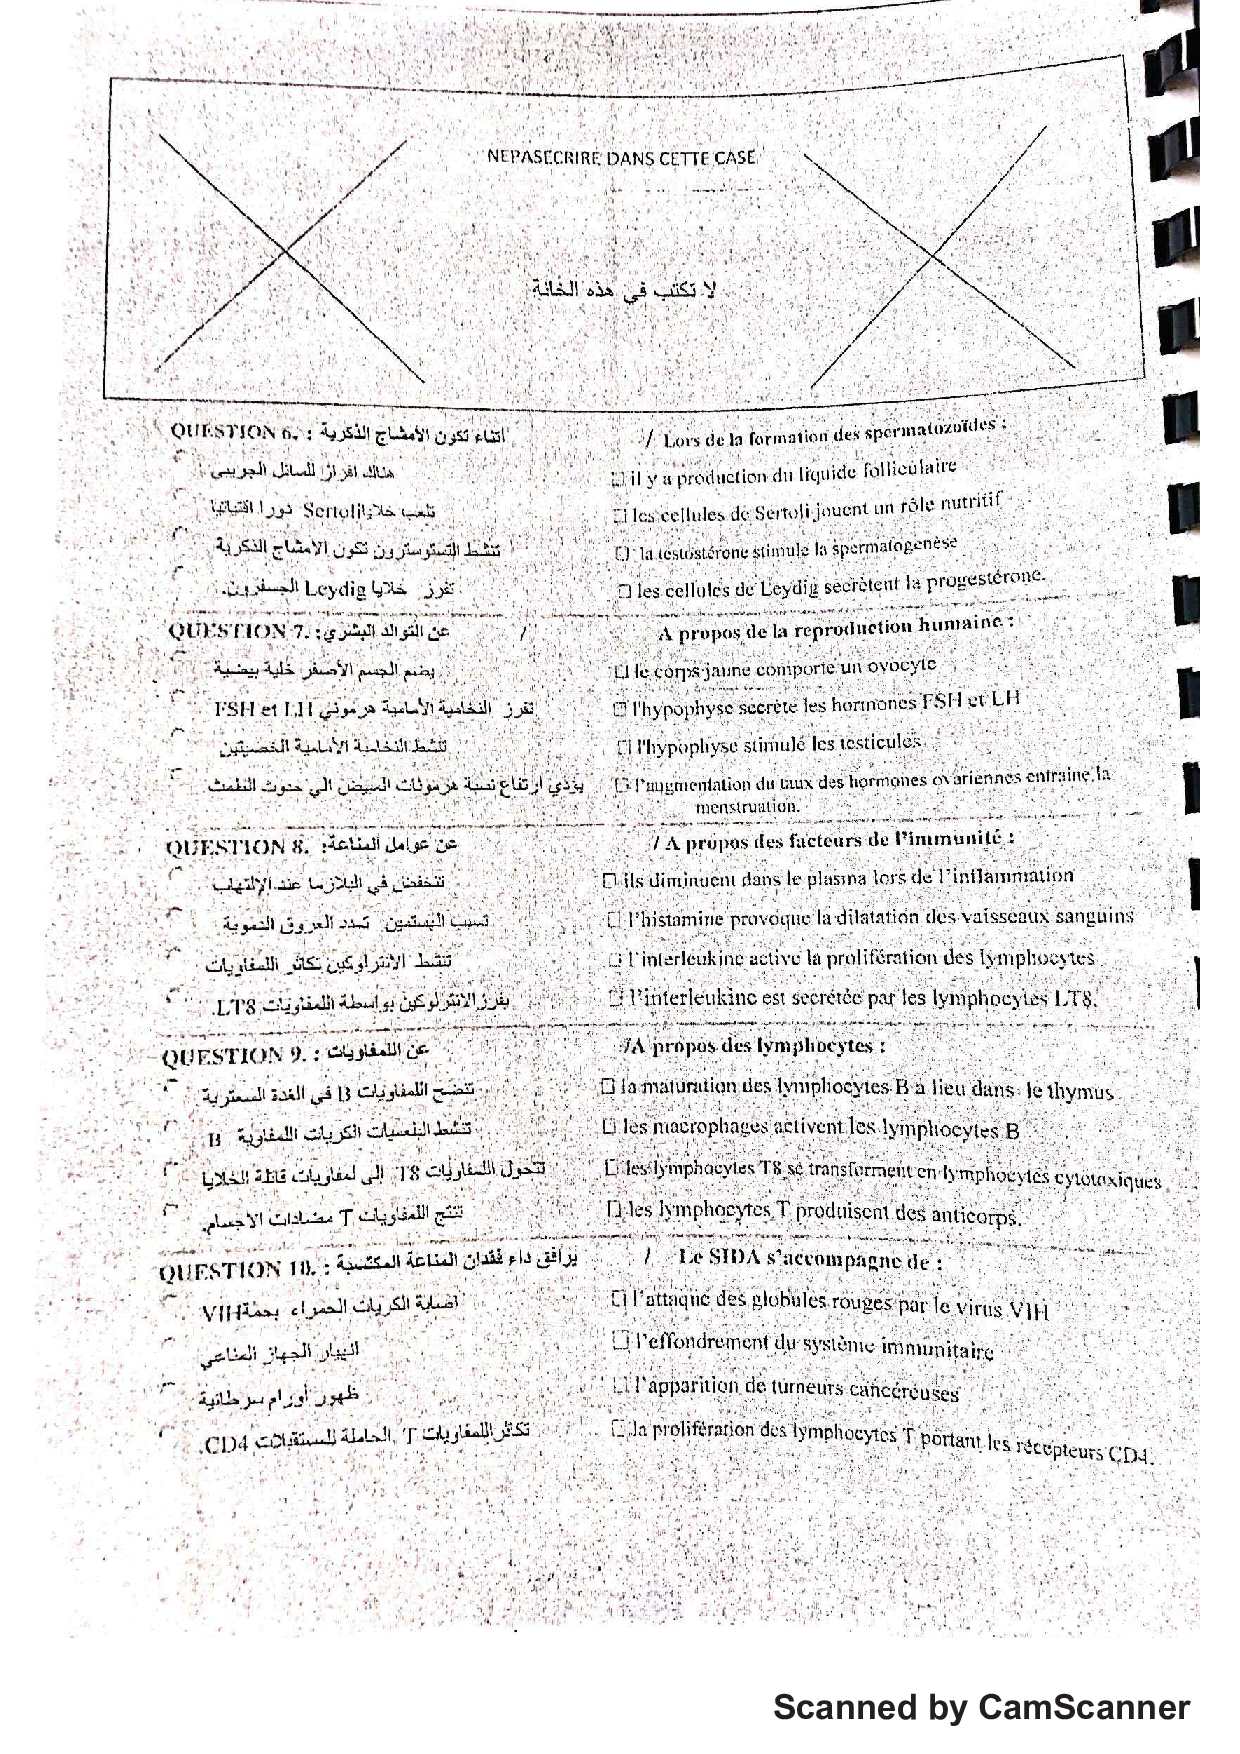 NEPASECRIRE DANS CETTE CASE
لا تكتب في هذه الخانة
QUESTION 6. : اثناء تكون الأمشاج الذكرية / Lors de la formation des spermatozoïdes :
هناك افرازا للسائل الجريبي □ il y a production du liquide folliculaire
تلعب خلايا Sertoli دورا اقتياتيا □ les cellules de Sertoli jouent un rôle nutritif
تنشط التستوسترون تكون الامشاج الذكرية □ la testostérone stimule la spermatogenèse
تفرز خلايا Leydig الجسفرون. □ les cellules de Leydig secrètent la progestérone.
QUESTION 7. : عن التوالد البشري / A propos de la reproduction humaine :
يضم الجسم الأصفر خلية بيضية □ le corps jaune comporte un ovocyte
تفرز النخامية الأمامية هرموني FSH et LH □ l'hypophyse secrète les hormones FSH et LH
تنشط النخامية الأمامية الخصيتين □ l'hypophyse stimule les testicules
يؤدي ارتفاع نسبة هرمونات المبيض الى حدوث الطمث □ l'augmentation du taux des hormones ovariennes entraine la
menstruation.
QUESTION 8. : عن عوامل المناعة / A propos des facteurs de l'immunité :
تنخفض في البلازما عند الإلتهاب □ ils diminuent dans le plasma lors de l'inflammation
تسبب الهستمين تمدد العروق الدموية □ l'histamine provoque la dilatation des vaisseaux sanguins
تنشط الانترلوكين تكاثر اللمفاويات □ l'interleukine active la prolifération des lymphocytes
يفرز الانترلوكين بواسطة اللمفاويات LT8. □ l'interleukine est secrétée par les lymphocytes LT8.
QUESTION 9. : عن اللمفاويات /A propos des lymphocytes :
تنضج اللمفاويات B في الغدة السعترية □ la maturation des lymphocytes B a lieu dans le thymus
تنشط البلعميات الكريات اللمفاوية B □ les macrophages activent les lymphocytes B
تتحول اللمفاويات T8 الى لمفاويات قاتلة الخلايا □ les lymphocytes T8 se transforment en lymphocytes cytotoxiques
تنتج اللمفاويات T مضادات الاجسام. □ les lymphocytes T produisent des anticorps.
QUESTION 10. : يرافق داء فقدان المناعة المكتسبة / Le SIDA s'accompagne de :
اصابة الكريات الحمراء بحمة VIH □ l'attaque des globules rouges par le virus VIH
انهيار الجهاز المناعي □ l'effondrement du système immunitaire
ظهور أورام سرطانية □ l'apparition de tumeurs cancéreuses
تكاثر اللمفاويات T الحاملة للمستقبلات CD4. □ la prolifération des lymphocytes T portant les récepteurs CD4.
Scanned by CamScanner